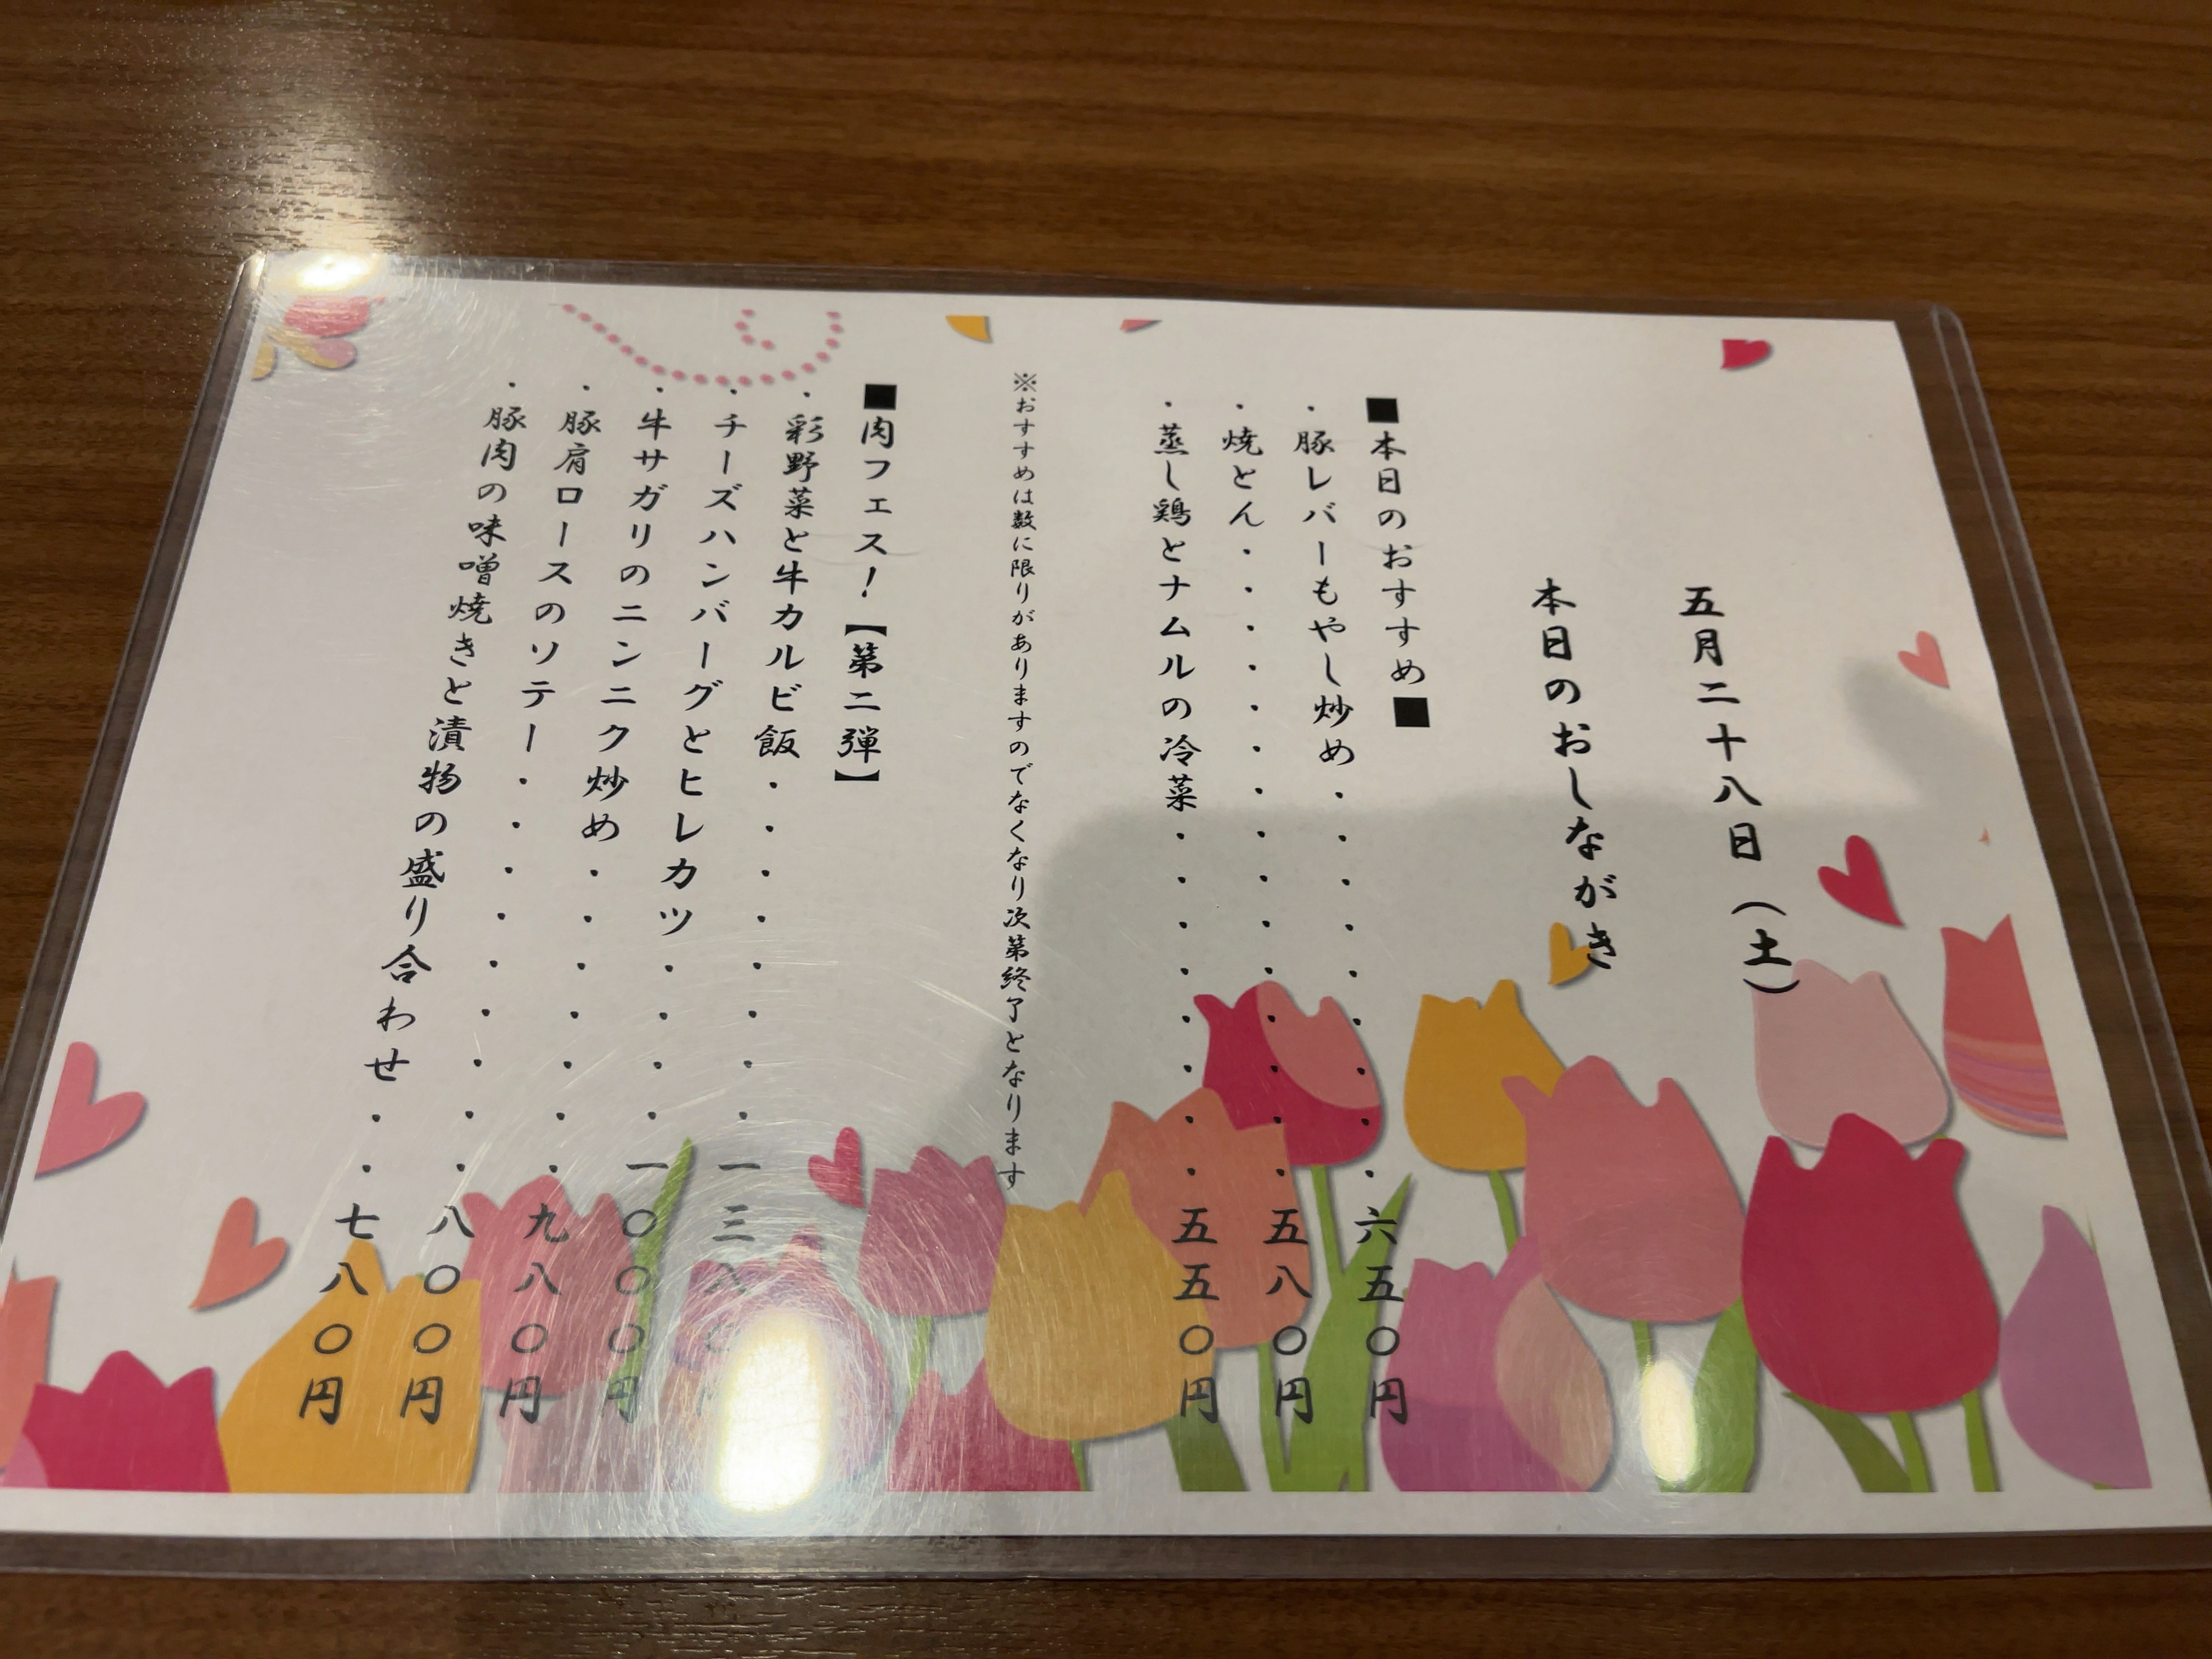 五月二十八日（土）
本日のおしながき
■本日のおすすめ■
・豚レバーもやし炒め・・・・・・・・・六五〇円
・焼とん・・・・・・・・・・・・・・・五八〇円
・蒸し鶏とナムルの冷菜・・・・・・・・五五〇円
※おすすめは数に限りがありますのでなくなり次第終了となります
■肉フェス！【第二弾】
・彩野菜と牛カルビ飯・・・・・・・・一三八〇
・チーズハンバーグとヒレカツ・・・・一〇〇〇円
・牛サガリのニンニク炒め・・・・・・・九八〇円
・豚肩ロースのソテー・・・・・・・・・八〇〇円
・豚肉の味噌焼きと漬物の盛り合わせ・・七八〇円